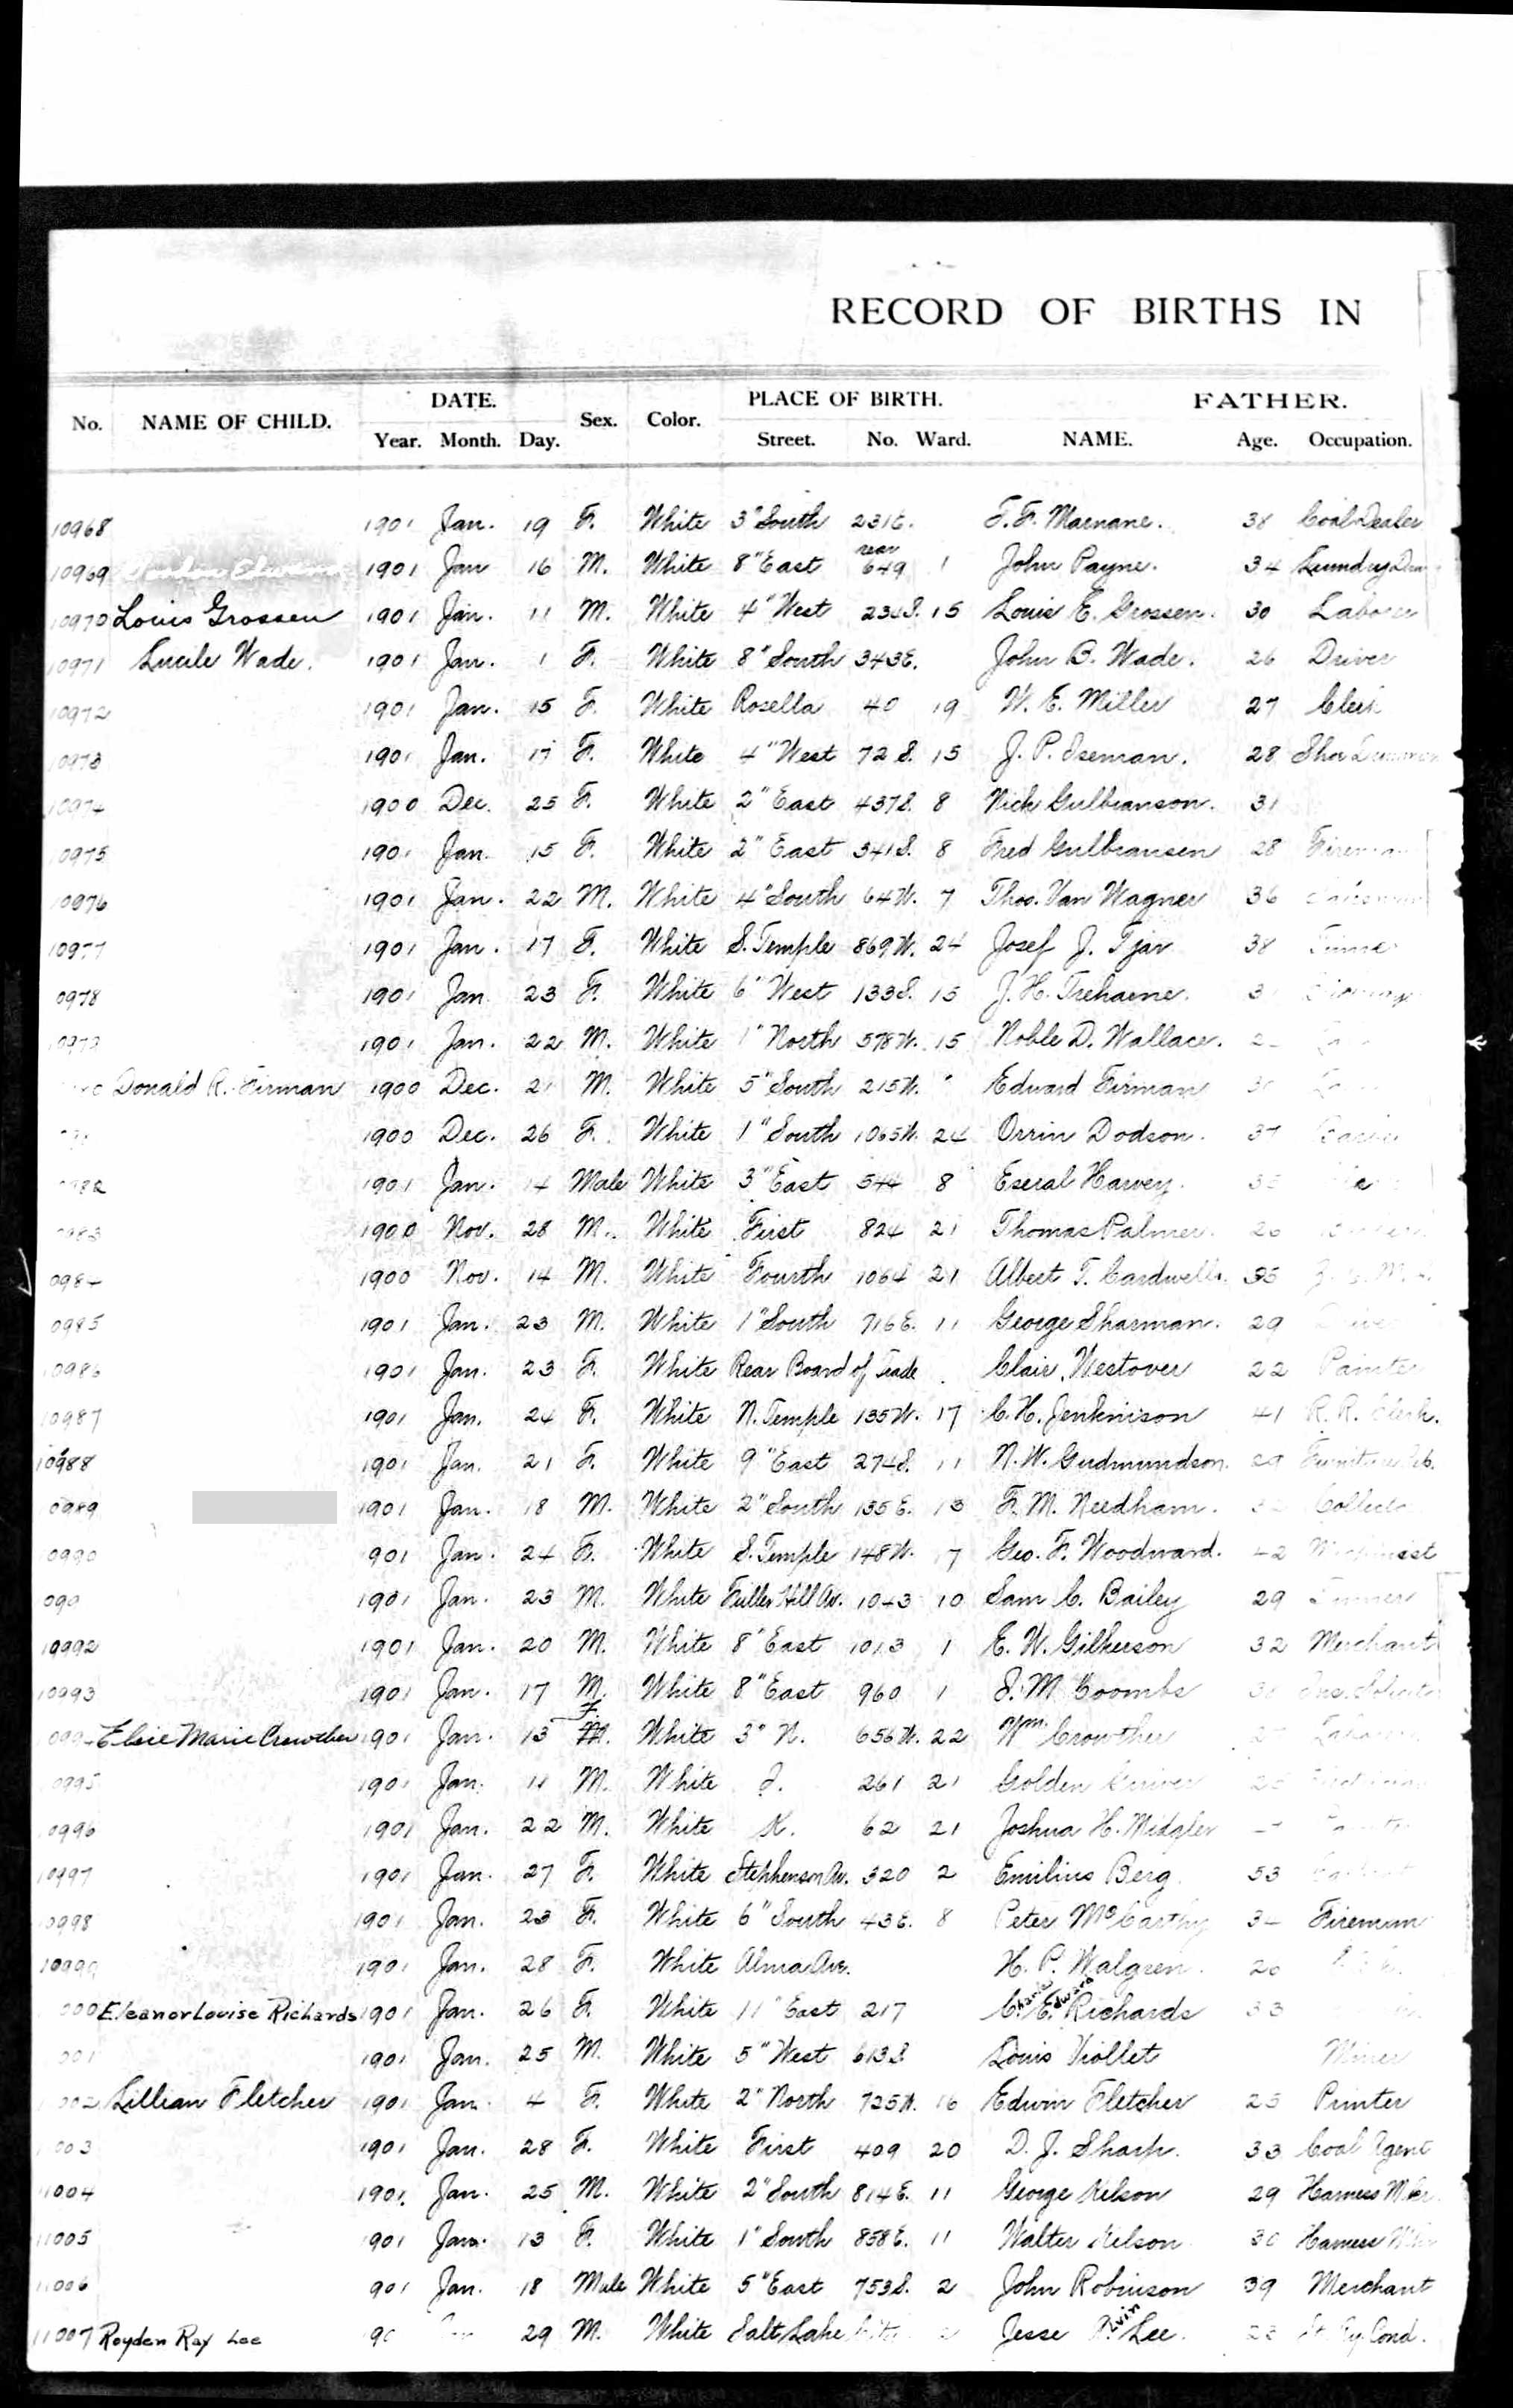 RECORD OF BIRTHS IN
DATE. PLACE OF BIRTH. FATHER.
No. NAME OF CHILD. Sex. Color.
Year. Month. Day. Street. No. Ward. NAME. Age. Occupation.
10968 1901 Jan. 19 F. White 3" South 231E. F. Marnane. 38 Coal Dealer
10969 1901 Jan 16 M. White 8" East rear 649 1 John Payne. 34 Laundry
10970 Louis Grossen 1901 Jan. 11 M. White 4" West 234S. 15 Louis E. Grossen. 30 Laborer
10971 Lucile Wade. 1901 Jan. 1 F. White 8" South 343E. John B. Wade. 26 Driver
10972 1901 Jan. 15 F. White Rosella 40 19 W. E. Miller 27 Clerk
10973 1901 Jan. 17 F. White 4" West 72 S. 15 J. P. Iseman. 28 Shoe
10974 1900 Dec. 25 F. White 2" East 437S. 8 Nick Gulbranson. 31
0975 1901 Jan. 15 F. White 2" East 341S. 8 Fred Gulbransen 28 Fireman
10976 1901 Jan. 22 M. White 4" South 64W. 7 Thos. Van Wagner 36
10977 1901 Jan. 17 F. White S. Temple 869W. 24 Josef J. 38
0978 1901 Jan 23 F. White 6" West 133S. 15 J. H. Treharne.
1901 Jan. 22 M. White 1" North 578W. 15 Noble D. Wallace.
Donald R. Firman 1900 Dec. 21 M. White 5" South 215W. Edward Firman
1900 Dec. 26 F. White 1" South 1065W. 24 Orrin Dodson. 37
1901 Jan. 14 Male White 3" East 544 8 Eseral Harvey.
0983 1900 Nov. 28 M. White First 824 21 Thomas Palmer. 26
098 1900 Nov. 14 M. White Fourth 1064 21 Albert T. Cardwell. 35
0985 1901 Jan. 23 M. White 1" South 716E. 11 George Sharman. 29
10986 1901 Jan. 23 F. White Rear Board of Trade Clair Westover 22 Painter
10987 1901 Jan. 24 F. White N. Temple 135W. 17 C. H. Jenkinson 41 R. R. Clerk.
10988 1901 Jan. 21 F. White 9" East 274S. 11 N. W. Gudmundson. 29
0989 1901 Jan. 18 M. White 2" South 135E. 13 F. M. Needham.
0990 901 Jan. 24 F. White S. Temple 148W. 7 Geo. F. Woodward. 42
099 1901 Jan. 23 M. White Fuller Hill Av. 1043 10 Sam C. Bailey 29
10992 1901 Jan. 20 M. White 8" East 1013 1 E. W. Gilkerson 32 Merchant
10993 1901 Jan. 17 M. White 8" East 960 1 S. M. Coombs
099 Elsie Marie Crowther 1901 Jan. 13 F. White 3" N. 656W. 22 Wm. Crowther
0995 1901 Jan. 11 M. White J. 261 21 Golden
0996 1901 Jan. 22 M. White K. 62 21 Joshua H. Midgley
10997 1901 Jan. 27 F. White Stephenson Av. 320 2 Emilius Berg 53
0998 1901 Jan. 23 F. White 6" South 43E. 8 Peter McCarthy Fireman
10999 1901 Jan. 28 F. White Alma Ave. H. P. Walgren.
000 Eleanor Louise Richards 1901 Jan. 26 F. White 11" East 217 Charles Edward Richards 33
001 1901 Jan. 25 M. White 5" West 613S. Louis Viollet Miner
002 Lillian Fletcher 1901 Jan. 4 F. White 2" North 725W. 16 Edwin Fletcher 25 Printer
003 1901 Jan. 28 F. White First 409 20 D. J. Sharp. 33 Coal Agent
11004 1901. Jan. 25 M. White 2" South 814E. 11 George Nelson 29 Harness
11005 1901 Jan. 13 F. White 1" South 858E. 11 Walter Nelson 30 Harness
11006 901 Jan. 18 Male White 5" East 753S. 2 John Robinson 39 Merchant
11007 Royden Ray Lee 29 M. White Salt Lake Jesse Lee.